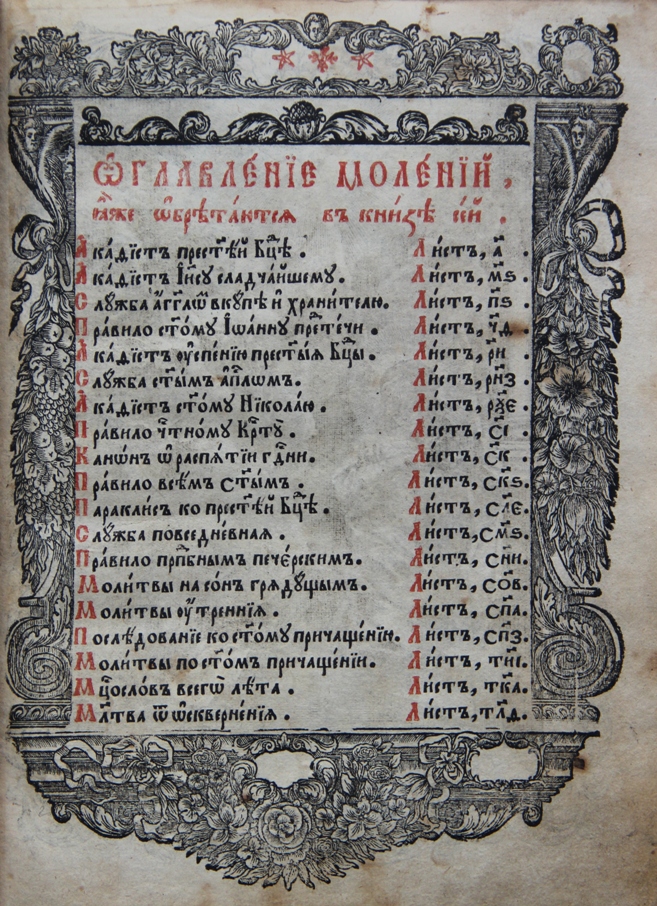 Ѡ҆главле́нїе моле́нїй,
ꙗ҆̀же ѡ҆брѣта́ются въ кни́зѣ се́й .
А҆ка́ѳїстъ прест҃ѣ́й Бц҃ѣ . Ли́стъ, а҃ .
А҆ка́ѳїстъ І҆и҃су сладча́йшему . Ли́стъ, м҃ѕ .
Слꙋ́жба а҆́гг҃лѡⷨ вкꙋпѣ и҆ храни́телю . Ли́стъ, п҃ѕ .
Пра́вило ст҃о́мꙋ І҆ѡа́ннꙋ прⷣте́чи . Ли́стъ, ч҃д .
А҆ка́ѳїстъ ᲂу҆спе́нїю прест҃ы́ѧ Бц҃ы . Ли́стъ, р҃и .
Слꙋ́жба ст҃ы́мъ а҆пⷭ҇лѡмъ . Ли́стъ, рн҃з .
А҆ка́ѳїстъ ст҃о́мꙋ Нїкола́ю . Ли́стъ,
Пра́вило чⷭ҇тно́мꙋ Крⷭ҇тꙋ̀ . Ли́стъ, с҃і .
Канѡ́нъ ѡ҆ распѧ́тїи гдⷭ҇ни . Ли́стъ, с҃к .
Пра́вило всѣ́мъ ст҃ы́мъ . Ли́стъ, ск҃ѕ .
Паракли́съ ко прест҃ѣ́й Бц҃ѣ . Ли́стъ, сл҃є .
Слꙋ́жба повседне́внаѧ . Ли́стъ, см҃ѕ .
Пра́вило прпⷣбнымъ пече́рскимъ . Ли́стъ, сн҃и .
Моли́твы на со́нъ грѧдꙋ́щымъ . Ли́стъ, со҃в .
Моли́твы ᲂу҆́треннїѧ . Ли́стъ, сп҃а .
Послѣ́дованїе ко ст҃о́мꙋ причаще́нїю . Ли́стъ, сп҃з .
Моли́твы по ст҃о́мъ причаще́нїи . Ли́стъ, ті҃ .
Мцⷭ҇осло́въ всегѡ̀ лѣ́та . Ли́стъ, тк҃а .
Мл҃тва ѿ ѡ҆скверне́нїѧ . Ли́стъ, тл҃д .